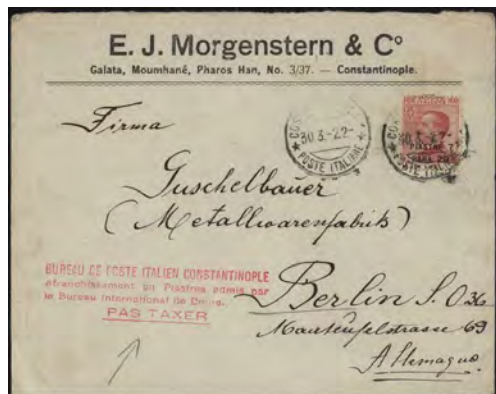 E. J. Morgenstern & Cº
Galata, Moumhané, Pharos Han, No. 3/37. — Constantinople.
Firma
30 3.-22-
★ POSTE ITALIANE ★
PIASTRE 7
PARA 20
POSTE ITALIANE
Guschelbauer
(Metallwarenfabrik)
BUREAU DE POSTE ITALIEN CONSTANTINOPLE
affranchissement en Piastres admis par
le Bureau International de Berne.
PAS TAXER
Berlin S. O 36
Manteufelstrasse 69
Allemagne